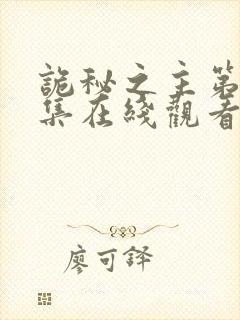 詭秘之主第
集在綫觀看
廖可鐸